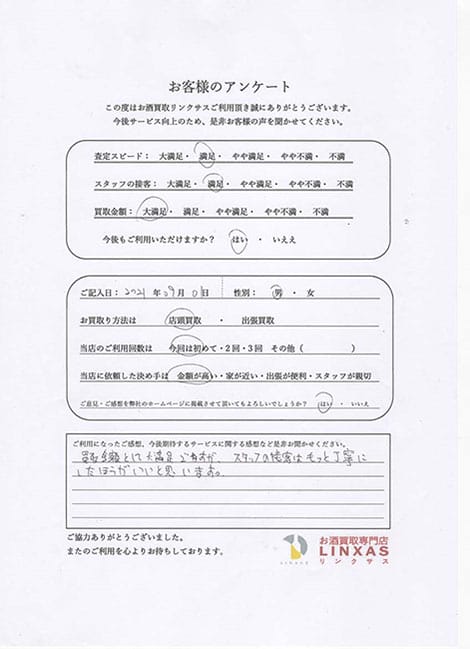 お客様のアンケート
この度はお酒買取リンクサスご利用頂き誠にありがとうございます。
今後サービス向上のため、是非お客様の声を聞かせてください。
査定スピード： 大満足・ 満足・ やや満足・ やや不満・ 不満
スタッフの接客： 大満足・ 満足・ やや満足・ やや不満・ 不満
買取金額： 大満足・ 満足・ やや満足・ やや不満・ 不満
今後もご利用いただけますか？ はい ・ いええ
ご記入日： 2021 年 09 月 01 日 性別： 男 ・ 女
お買取り方法は 店頭買取 ・ 出張買取
当店のご利用回数は 今回は初めて・2回・3回 その他（ ）
当店に依頼した決め手は 金額が高い・家が近い・出張が便利・スタッフが親切
ご意見・ご感想を弊社のホームページに掲載させて頂いてもよろしいでしょうか？ はい ・ いいえ
ご利用になったご感想、今後期待するサービスに関する感想など是非お聞かせください。
金額として大満足ですが、スタッフの接客はもっと丁寧に
したほうがいいと思います。
ご協力ありがとうございました。
またのご利用を心よりお待ちしております。
LINXAS
お酒買取専門店
LINXAS
リンクサス